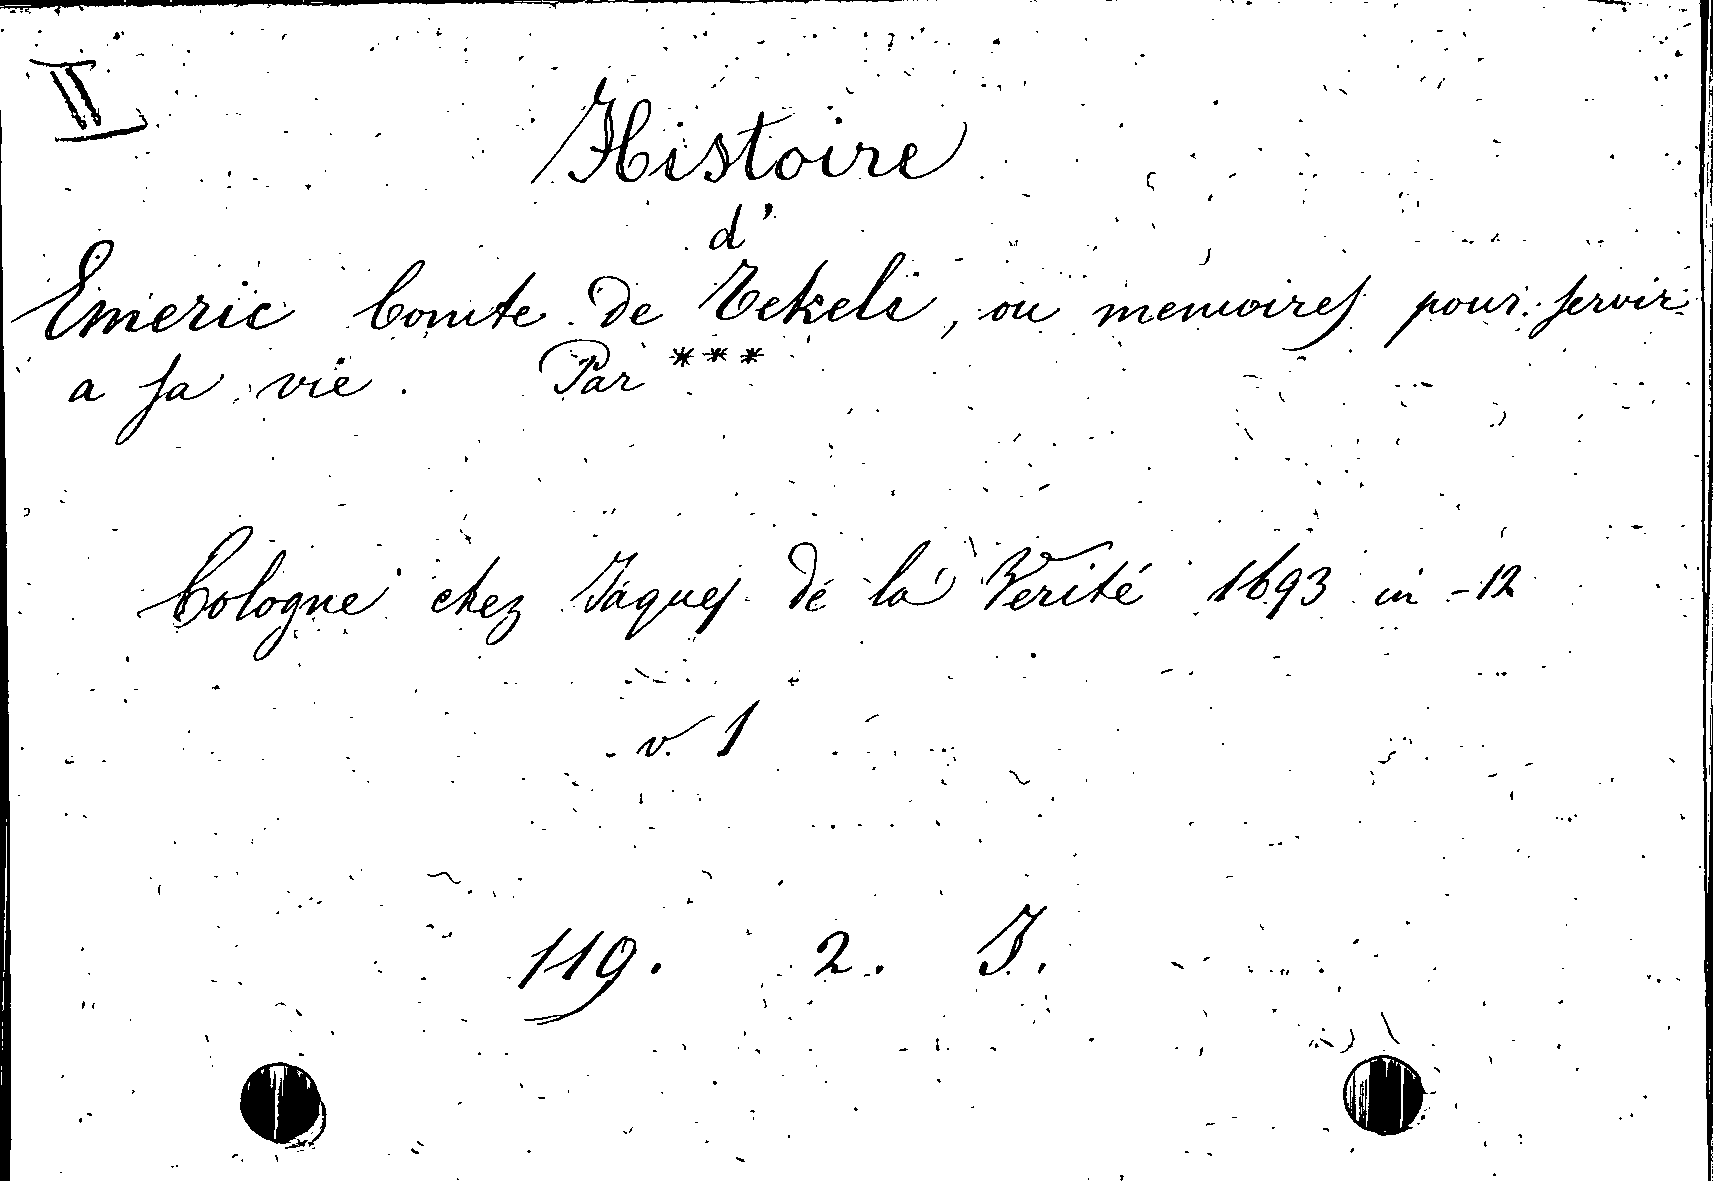 II
Histoire
d'
Emeric Comte de Tekeli, ou memoires pour servir
a sa vie. Par ***
Cologne chez Jaques de la Verité 1693 in-12
v. 1
119. 2. J.